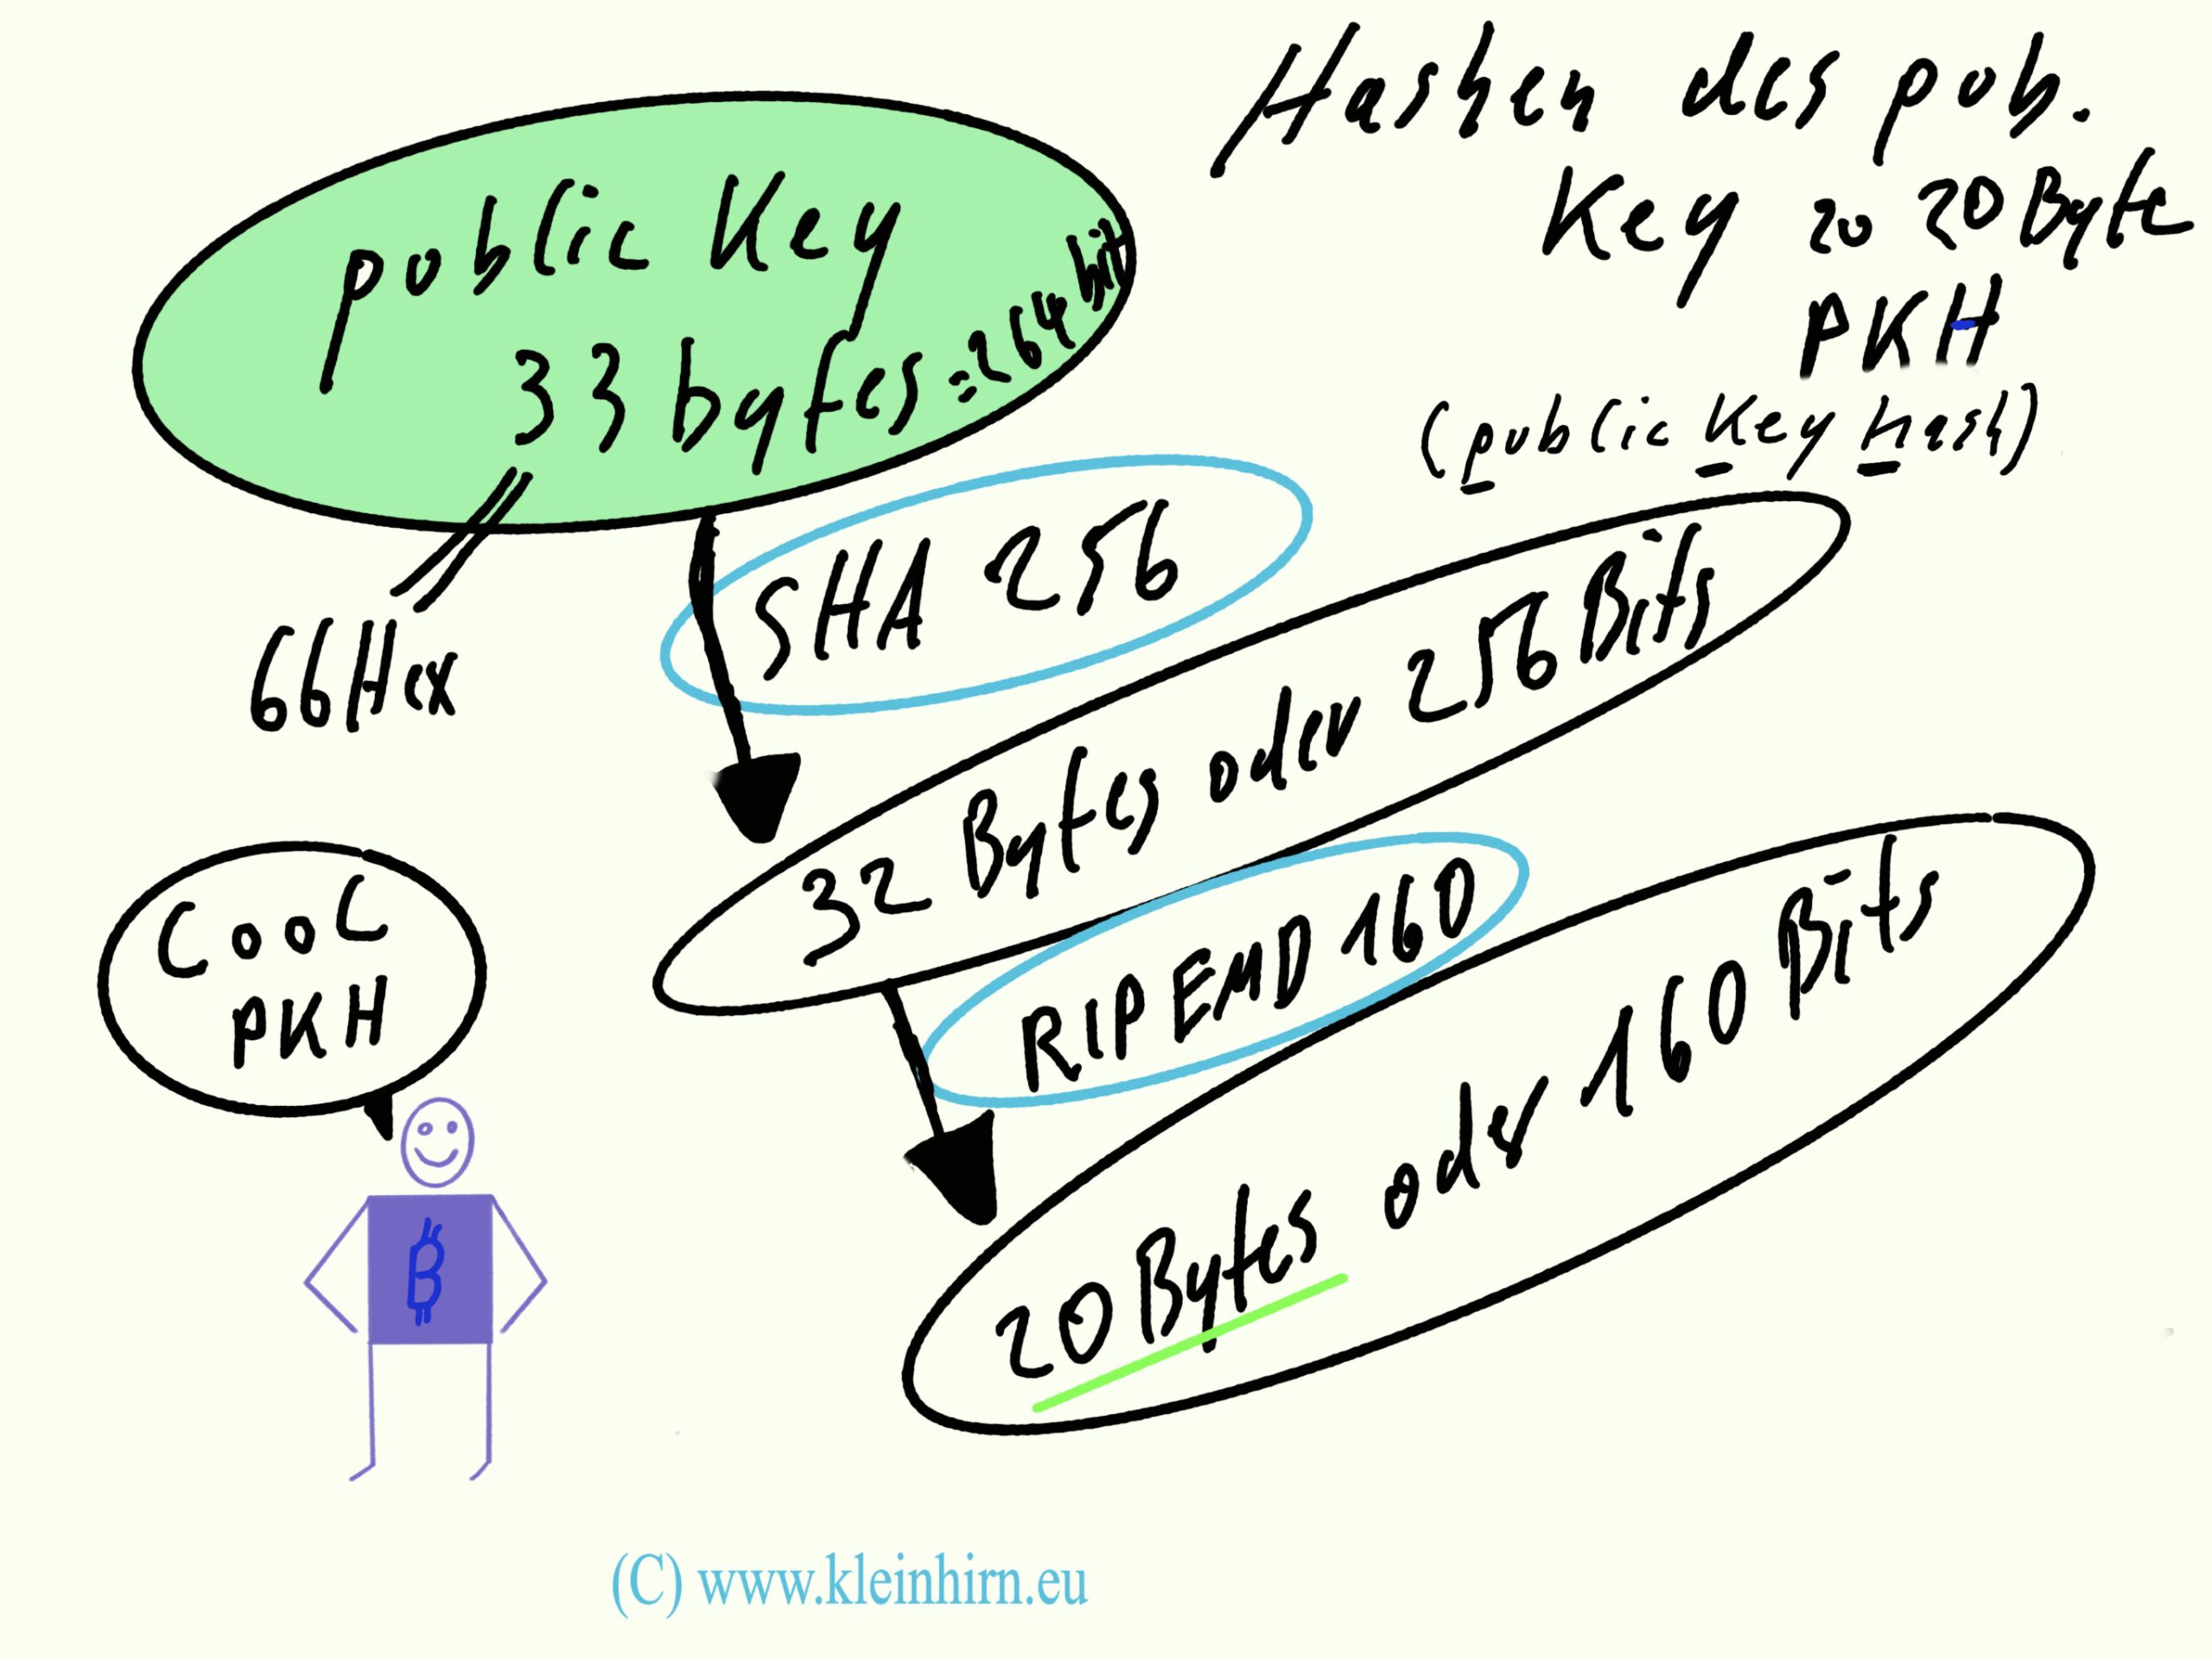 Hashen des pub.
Key zu 20 Byte
PKH
(public Key Hash)
public Key
33 bytes = 264 bit
66 Hex
SHA 256
32 Bytes oder 256 Bits
RIPEMD 160
20 Bytes oder 160 Bits
Cool
PKH
₿
(C) www.kleinhirn.eu